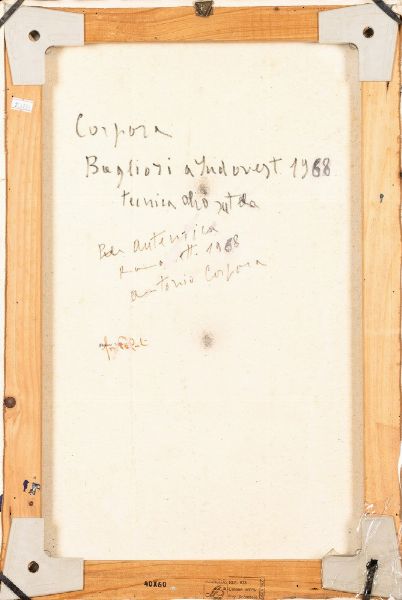 Corpora
Bagliori a Sudovest 1968
tecnica olio su tela
Per autentica
Roma 1968
Antonio Corpora
40X60